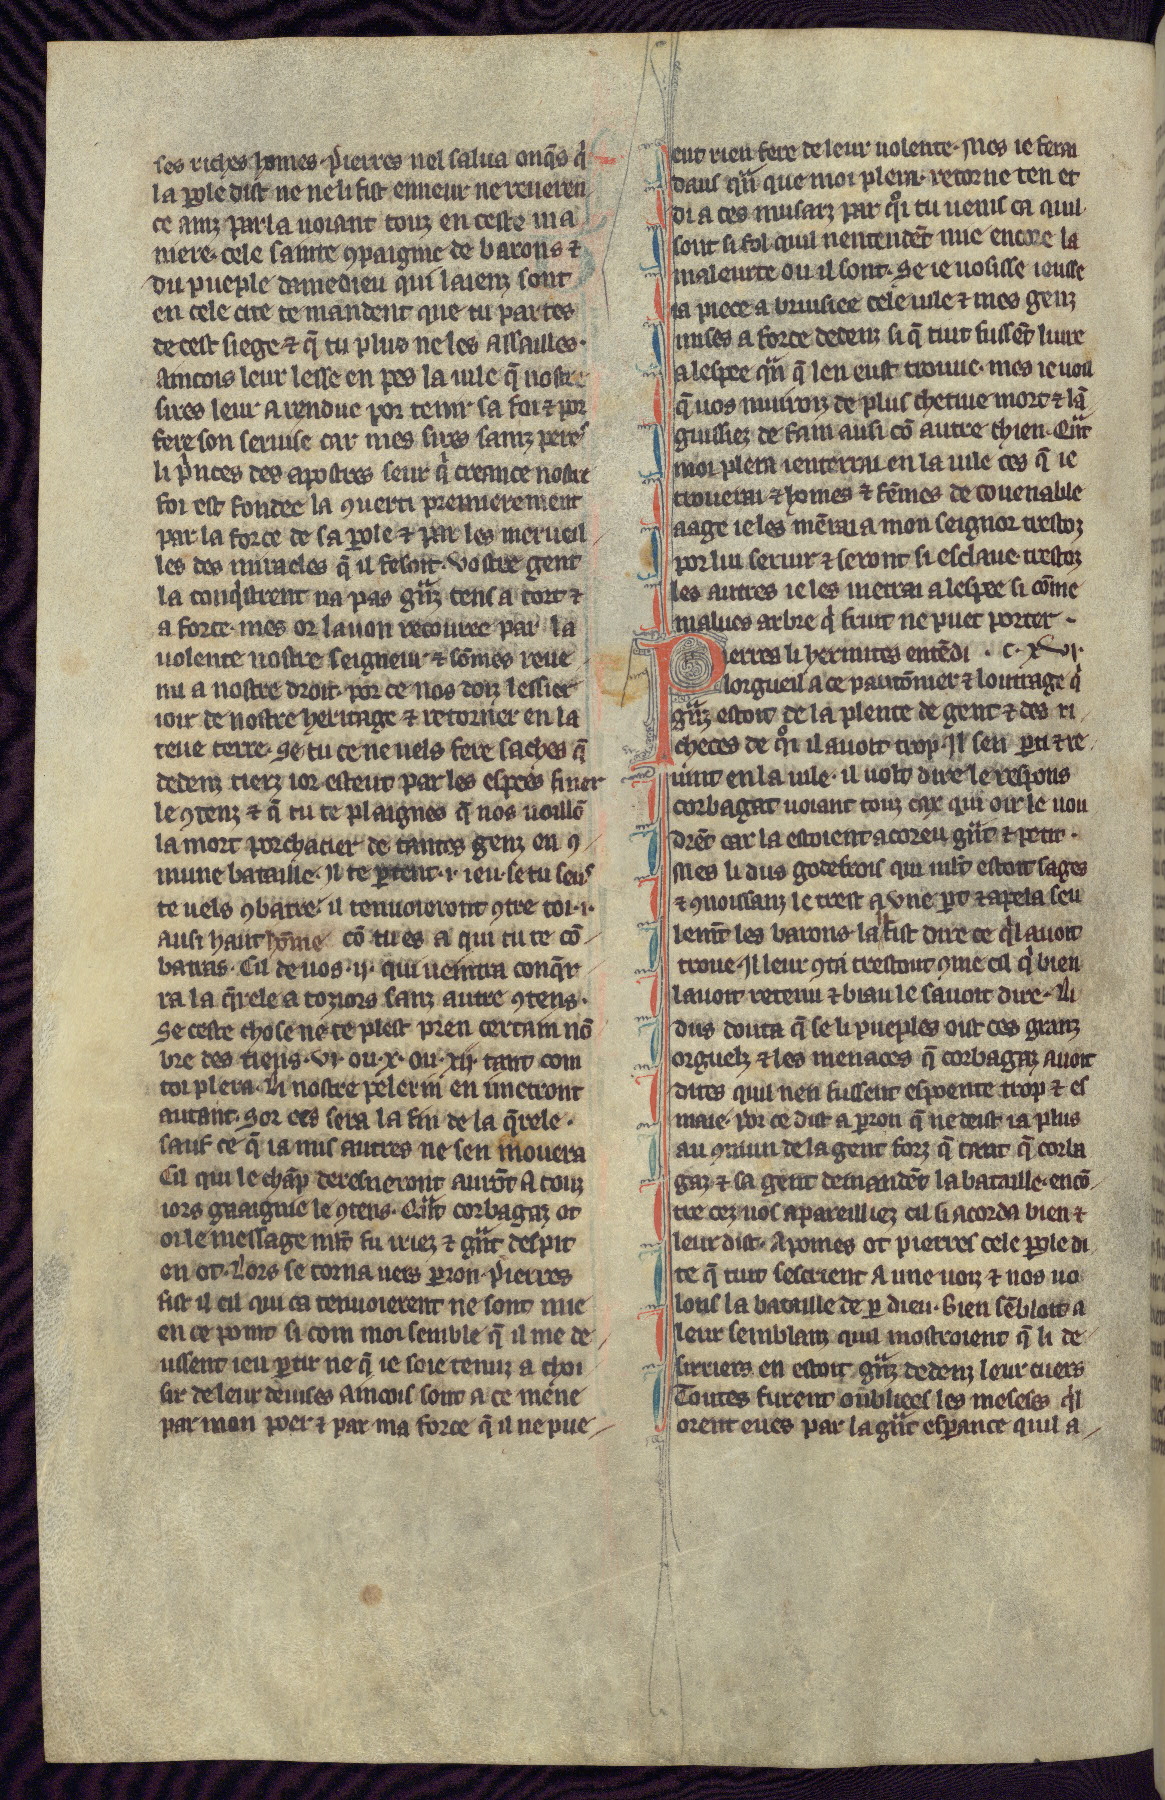 ses riches homes. Pierres nel salua onq̃s q̾
la ꝑole dist ne ne li fist enneur ne reueren
ce ainz parla uoiant touz en ceste ma
niere. cele sainte ꝯpaignie de barons ⁊
du pueple damedieu qui laienz sont
en cele cite te mandent que tu partes
de cest siege ⁊ q̃ tu plus ne les assailles.
Aincois leur lesse en pes la uile q̃ nostre
sires leur a rendue por tenir sa foi ⁊ por
fere son seruise car mes sires sainz peres
li p̾nces des apostres seur q̾ creance nostre
foi est fondee la ꝯuerti premierement
par la force de sa ꝑole ⁊ par les merueil
les des miracles q̃ il fesoit. Vostre gent
la conq̾strent na pas g̃nz tens a tort ⁊
a force. mes or lauon recouree par la
uolente nostre seigneur ⁊ sõmes reue
nu a nostre droit. por ce nos doiz lessier
ioir de nostre heritage ⁊ retorner en la
teue terre. Se tu ce ne uels fere saches q̃
dedenz tierz ior esteut par les espees finer
le ꝯtenz ⁊ q̃ tu te plaignes q̃ nos uoillõ
la mort porchacier de tantes genz en ꝯ
mune bataille. Il te ꝑtent .i. ieu. se tu seus
te uels ꝯbatre. il tenuoieront ꝯtre toi .i.
ausi haut hõme cõ tu es a qui tu te cõ
batras. Cil de uos .ij. qui ueintra conq̃r
ra la q̃rele a toziors sanz autre ꝯtens.
Se ceste chose ne te plest pren certain nõ
bre des tiens .vi. ou .x. ou .xij. tant com
toi plera. Li nostre pelerin en metront
autant. Sor ces sera la fin de la q̃rele.
sauf ce q̃ ia nus autres ne sen mouera
Cil qui le chãp deresneront aurõt a touz
iors gaaignie le ꝯtens. Qñt corbagaz ot
oi le message ml̃t fu iriez ⁊ g̃nt despit
en ot. Lors se torna uers ꝑron. Pierres
fist il cil qui ca tenuoierent ne sont mie
en ce point si com moi semble q̃ il me de
ussent ieu ꝑtir ne q̃ ie soie tenuz a choi
sir de leur deuises aincois sont a ce mene
par mon poer ⁊ par ma force q̃ il ne pue
ent rien fere de leur uolente. Mes ie ferai
daus q̃n que moi plera. retorne ten et
di a ces musarz par q̾i tu uenis ca quil
sont si fol quil nentendẽt mie encore la
maleurte ou il sont. Se ie uosisse ieusse
ia piece a bruisiee cele uile ⁊ mes genz
mises a force dedenz si q̃ tuit fussẽt liure
a lespee q̃n q̃ len eust trouue. mes ie uoil
q̃ uos muiroiz de plus chetiue mort ⁊ lã
guissiez de fain ausi cõ autre chien. Qñt
moi plera ienterrai en la uile ces q̃ ie
trouerai ⁊ homes ⁊ fẽmes de couenable
aage ie les mẽrai a mon seignor trestoz
por lui seruir ⁊ seront si esclaue. trestoz
les autres ie les metrai a lespee si cõme
malues arbre q̾ fruit ne puet porter.
Pierres li hermites entẽdi . c. xvi.
lorgueil a ce pautõnier ⁊ loutrage q̾
g̃nz estoit de la plente de gent ⁊ des ri
checes de q̾i il auoit trop. Il sen ꝑti ⁊ re
uint en la uile. il uolt dire le respons
corbagat uoiant touz cax qui oir le uou
drẽt car la estoient acoreu g̃nt ⁊ petit.
Mes li dus godefrois qui ml̃t estoit sages
⁊ ꝯnoissanz le trest a une ꝑt ⁊ apela seu
lem̃t les barons. la fist dire ce q̾l auoit
troue. Il leur ꝯta trestout ꝯme cil q̾ bien
lauoit retenu ⁊ biau le sauoit dire. Li
dus douta q̃ se li pueples oist ces granz
orguelz ⁊ les menaces q̃ corbagaz auoit
dites quil nen fussent espoente trop ⁊ es
maie. por ce dist a ꝑron q̃ ne deist ia plus
au ꝯmun de la gent forz q̃ tant q̃ corba
gaz ⁊ sa gent demandẽt la bataille. encõ
tre cez uos apareilliez cil si acorda bien ⁊
leur dist. A poines ot pierres cele ꝑole di
te q̃ tuit sescrient a une uoiz ⁊ nos uo
lons la bataille de ꝑ dieu. bien sẽbloit a
leur semblanz quil mostroient q̃ li de
sirriers en estoit g̃nz dedenz leur cuers
Toutes furent oũbliees les meseses q̾l
orent eues par la g̃nt esꝑance quil a